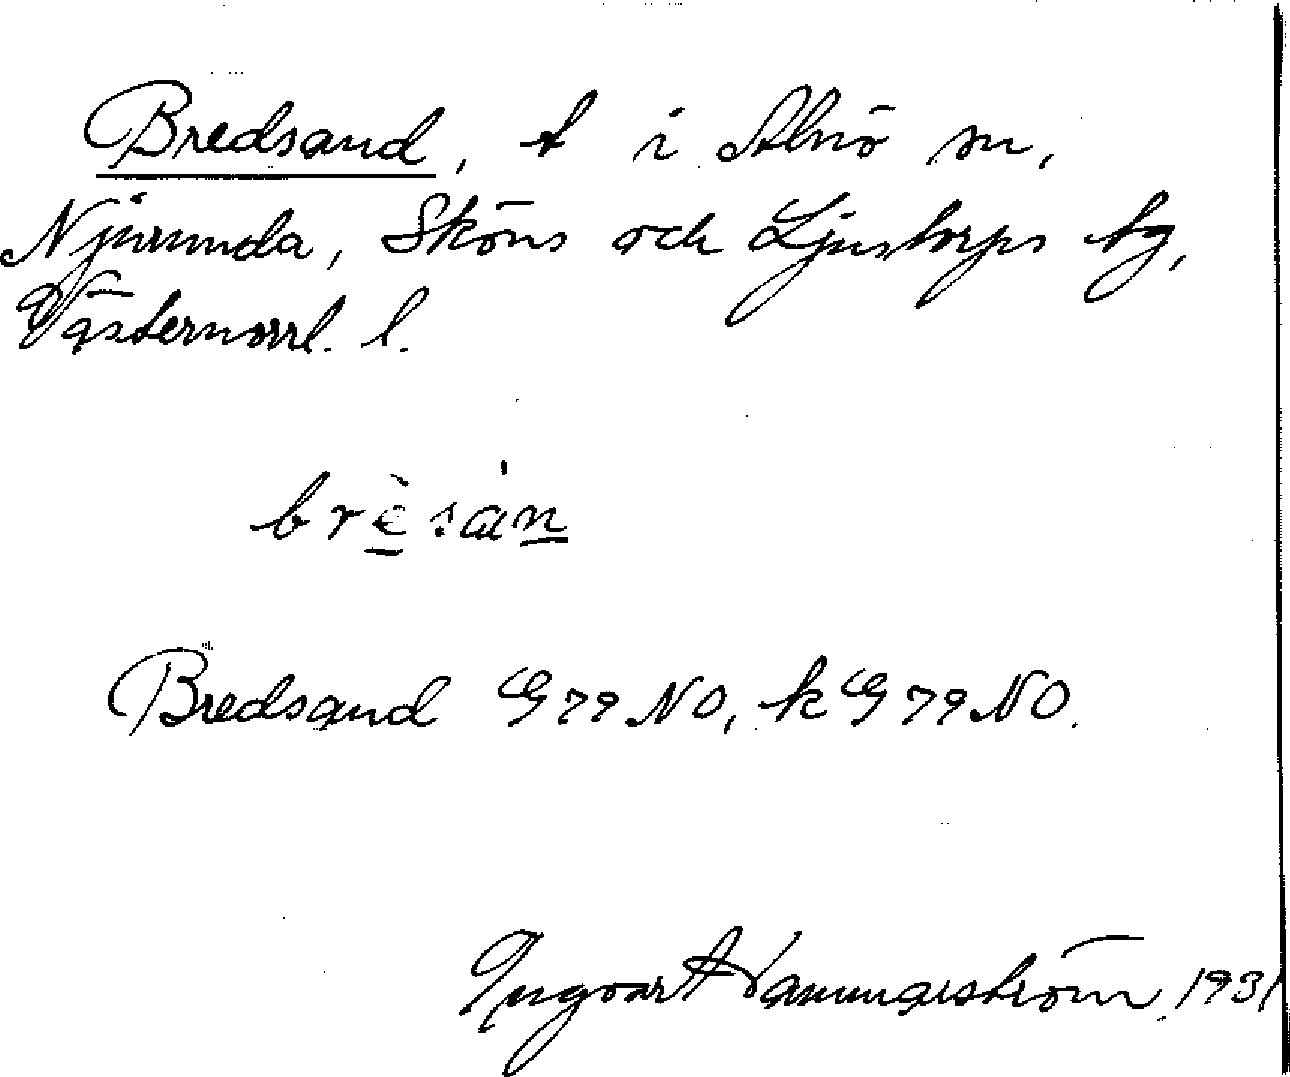 Bredsand, t i Alnö sn,
Njurunda, Sköns och Ljustorps tg,
Västernorrl. l.
brèsán
Bredsand G 79 NO, k G 79 NO.
Ingvar Hammarström 1931